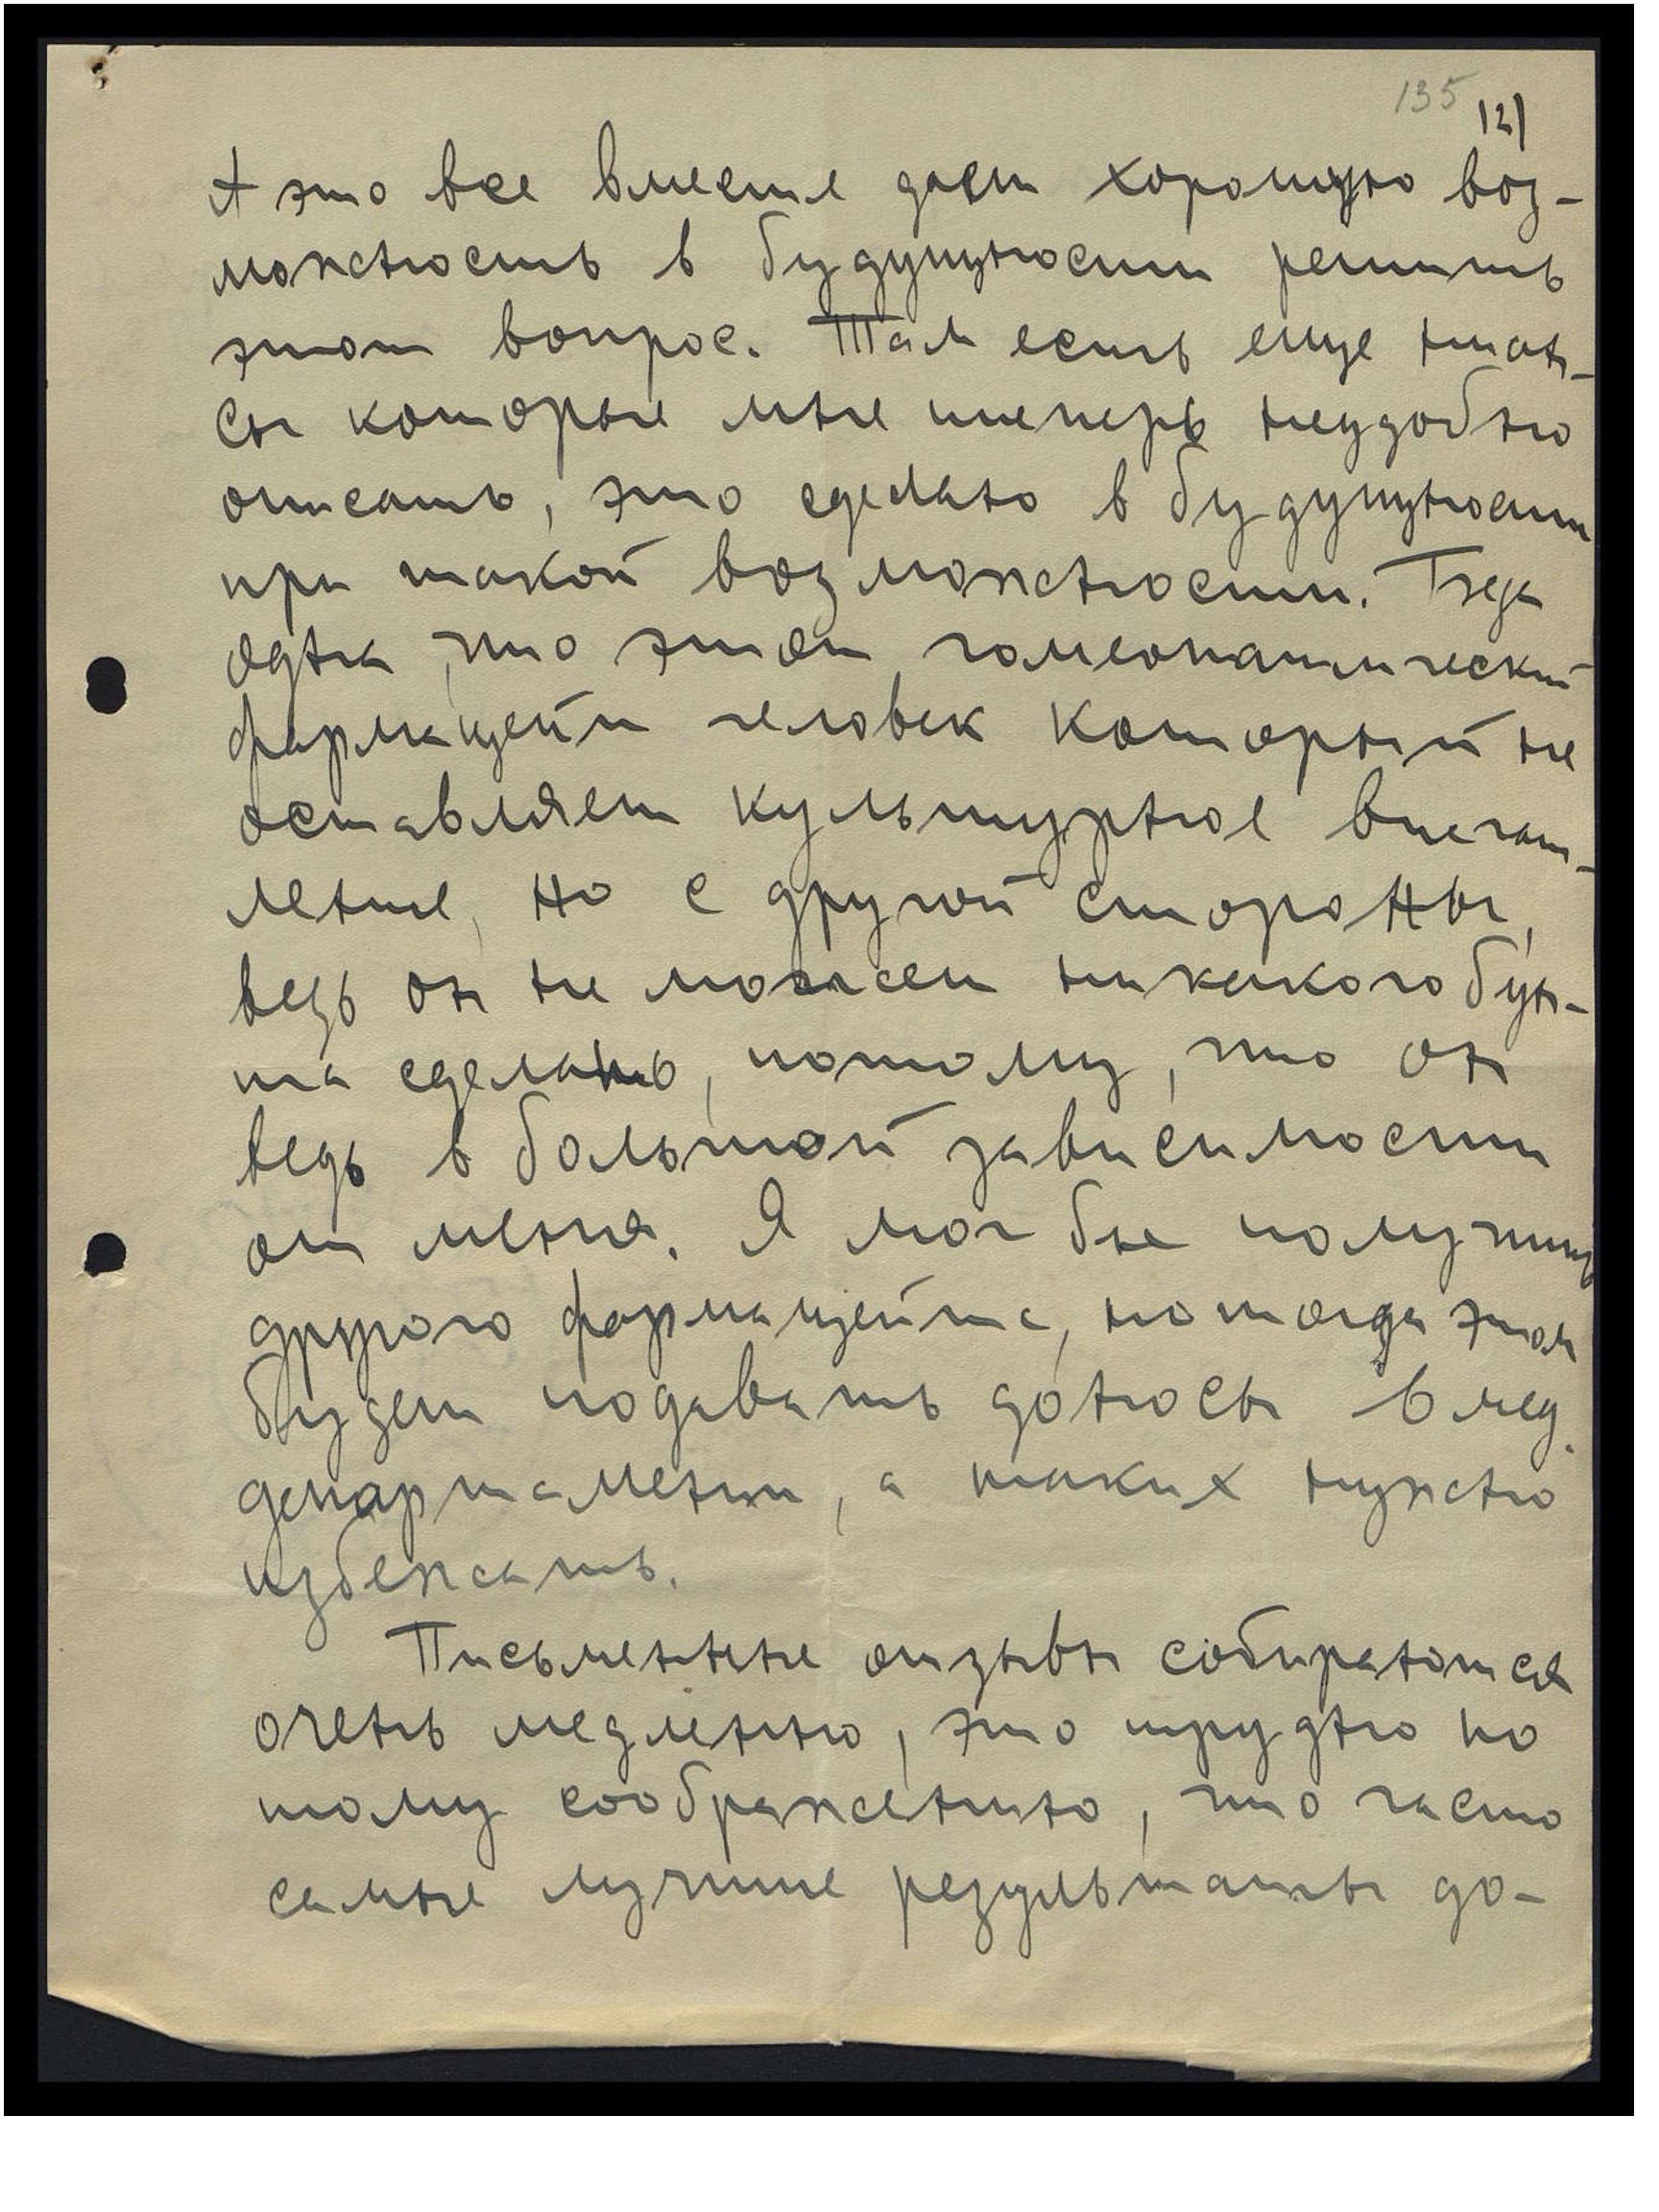 135 12)
А это все вместе даст хорошую воз-
можность в будущности решить
этот вопрос. Там есть еще нюан-
сы которые мне теперь неудобно
описать, это сделаю в будущности
при такой возможности. Беда
одна, что этот гомеопатический
фармацейт человек который не
оставляет культурное впечат-
ление, но с другой стороны,
ведь он не может никакого бун-
та сделать, потому, что он
ведь в большой зависимости
от меня. Я мог бы получить
другого фармацейта, но тогда этот
будет подавать доносы в мед.
департамент, а таких нужно
избежать.
Письменные отзывы собираются
очень медленно, это трудно по
тому соображению, что часто
самые лучшие результаты до-